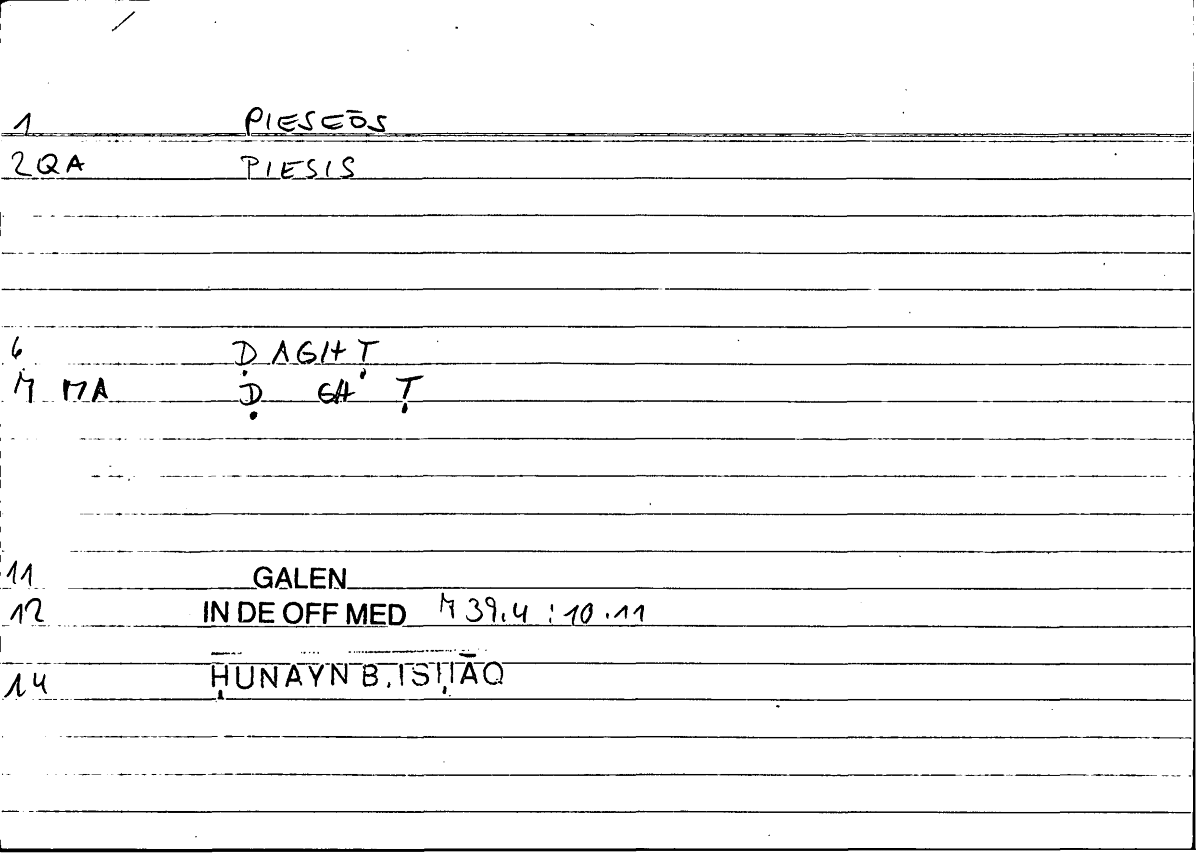 1 PIESEŌS
2QA PIESIS
6 ḌAGHṬ
7 MA Ḍ GH Ṭ
11 GALEN
12 IN DE OFF MED 739.4 : 10.11
14 ḤUNAYN B. ISḤĀQ